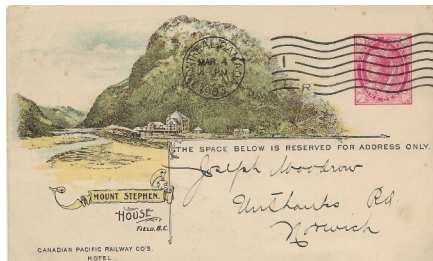 MAR 4
1
R
THE SPACE BELOW IS RESERVED FOR ADDRESS ONLY.
Joseph Woodrow
Unthanks Rd.
Norwich
MOUNT STEPHEN.
HOUSE
FIELD, B.C.
CANADIAN PACIFIC RAILWAY CO'S.
HOTEL.